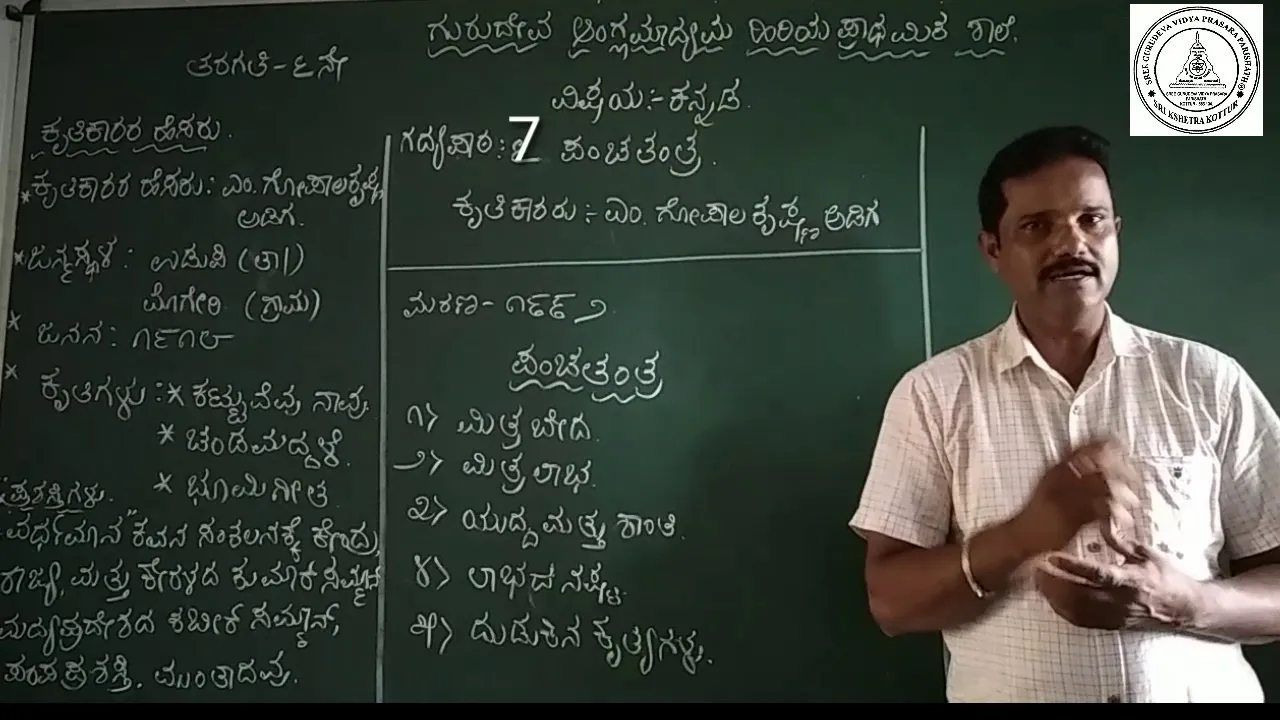 ಗುರುದೇವ ಆಂಗ್ಲಮಾದ್ಯಮ ಹಿರಿಯ ಪ್ರಾಥಮಿಕ ಶಾಲೆ.
ತರಗತಿ-೬ನೇ
ವಿಷಯ:-ಕನ್ನಡ.
ಗದ್ಯಪಾಠ: 7 ಪಂಚತಂತ್ರ.
ಕೃತಿಕಾರರು :- ಎಂ. ಗೋಪಾಲ ಕೃಷ್ಣ ಅಡಿಗ
ಕೃತಿಕಾರರ ಹೆಸರು.
* ಕೃತಿಕಾರರ ಹೆಸರು: ಎಂ. ಗೋಪಾಲಕೃಷ್ಣ
ಅಡಿಗ.
* ಜನ್ಮಸ್ಥಳ : ಉಡುಪಿ (ತಾ।)
ಮೊಗೇರಿ (ಗ್ರಾಮ)
* ಜನನ : ೧೯೧೮
* ಕೃತಿಗಳು : * ಕಟ್ಟುವೆವು ನಾವು
* ಚಂಡಮದ್ದಳೆ.
* ಭೂಮಿಗೀತ
ಪ್ರಶಸ್ತಿಗಳು.
ವರ್ಧಮಾನ" ಕವನ ಸಂಕಲನಕ್ಕೆ ಕೇಂದ್ರ,
ರಾಜ್ಯ, ಮತ್ತು ಕೇರಳದ ಕುಮಾರ ಸಮ್ಮಾನ್
ಮದ್ಯಪ್ರದೇಶದ ಕಬೀರ್ ಸಮ್ಮಾನ್,
ಪಂಪಪ್ರಶಸ್ತಿ. ಮುಂತಾದವು.
ಮರಣ- ೧೯೯೨
ಪಂಚತಂತ್ರ
೧> ಮಿತ್ರ ಬೇದ.
೨> ಮಿತ್ರ ಲಾಭ.
೩> ಯುದ್ದ ಮತ್ತು ಶಾಂತಿ.
೪> ಲಾಭದ ನಷ್ಟ.
೫> ದುಡುಕಿನ ಕೃತ್ಯಗಳು.
SREE GURUDEVA VIDYA PRASARA PARISHATH ®
SREE GURUDEVA VIDYA PRASARA
PARISHATH
KOTTUR - 583 134.
SRI KSHETRA KOTTUR